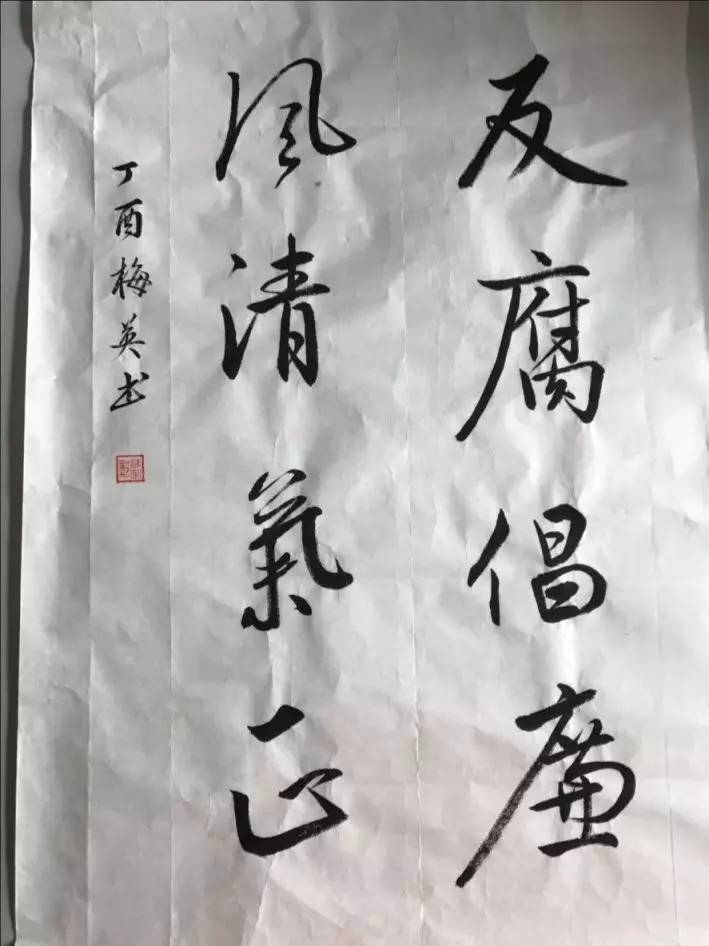 反腐倡廉
风清氣正
丁酉梅英书